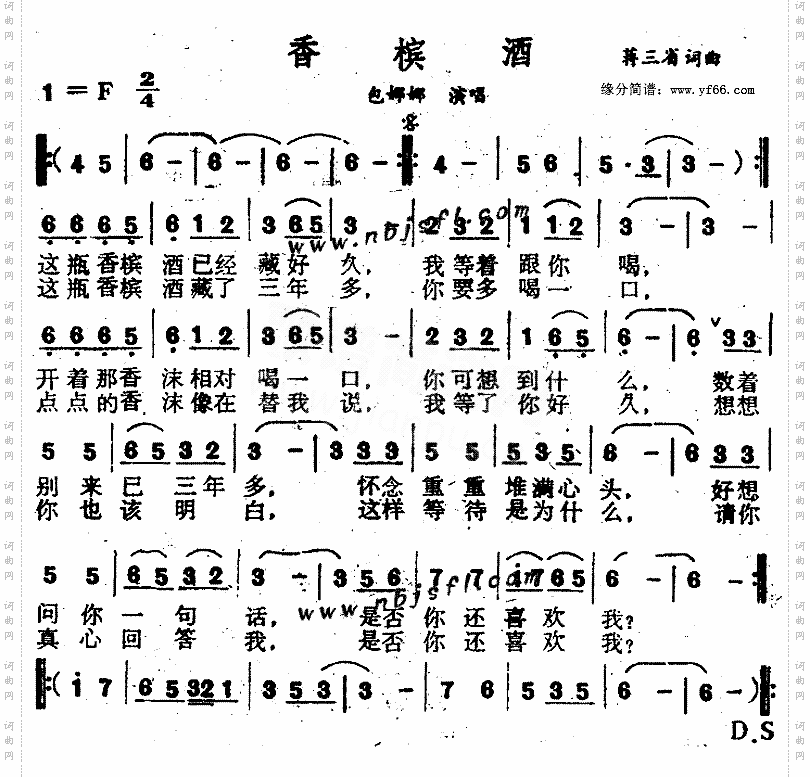 香槟酒
蒋三省 词曲
1=F 2/4
包娜娜 演唱
缘分简谱：www.yf66.com
( 4 5 | 6 - | 6 - | 6 - | 6 - : 4 - | 5 6 | 5 · 3 | 3 - ) :
6 6 6 5 | 6 1 2 | 3 6 5 | 3 - | 2 3 2 | 1 1 2 | 3 - | 3 -
www.nbjsfl.com
这瓶香槟 酒已经 藏好 久， 我等着 跟你 喝，
这瓶香槟 酒藏了 三年 多， 你要多 喝一 口，
6 6 6 5 | 6 1 2 | 3 6 5 | 3 - | 2 3 2 | 1 6 5 | 6 - | 6 3 3
开着那香 沫相对 喝一 口， 你可想 到什 么， 数着
点点的香 沫像在 替我 说， 我等了 你好 久， 想想
5 5 | 6 5 3 2 | 3 - | 3 3 3 | 5 5 | 5 3 5 | 6 - | 6 3 3
别来已三年多， 怀念重重堆满心头， 好想
你也该明白， 这样等待是为什么， 请你
5 5 | 6 5 3 2 | 3 - | 3 5 6 | 7 7 | i 7 6 5 | 6 - | 6 -
www.nbjsfl.com
问你一句话， 是否你还喜欢我？
真心回答我， 是否你还喜欢我？
: ( i 7 | 6 5 3 2 1 | 3 5 3 | 3 - | 7 6 | 5 3 5 | 6 - | 6 - ) :
D.S
词曲网